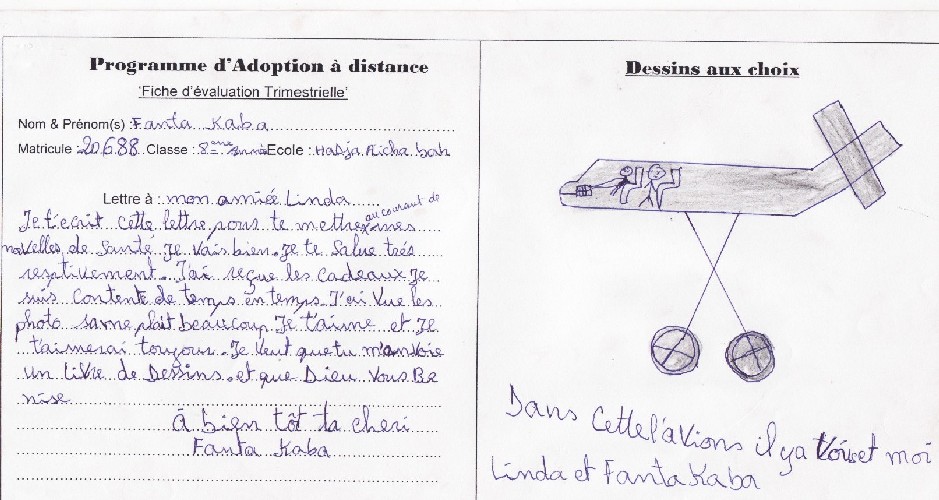 Programme d'Adoption à distance
'Fiche d'évaluation Trimestrielle'
Nom & Prénom(s) : Fanta Kaba
Matricule : 20688 Classe : 8ème année Ecole : Hadja Aicha bah
Lettre à : mon amiéé Linda
Je t'ecrit cette lettre pour te mettre au courant de mes
novelles de Santé Je vais bien. Je te Salue treś
respativement. J'ai reçue les cadeaux Je
suis contente de temps en temps J'ai vue les
photo same plait beaucoup Je t'aime et Je
t'aimerai toujour. Je veut que tu m'anvoie
un livre de Dessins. et que Dieu Vous Be
nise
à bien tôt ta cheri
Fanta Kaba
Dessins aux choix
Dans Cette l'avions il ya et moi
Linda et Fanta Kaba